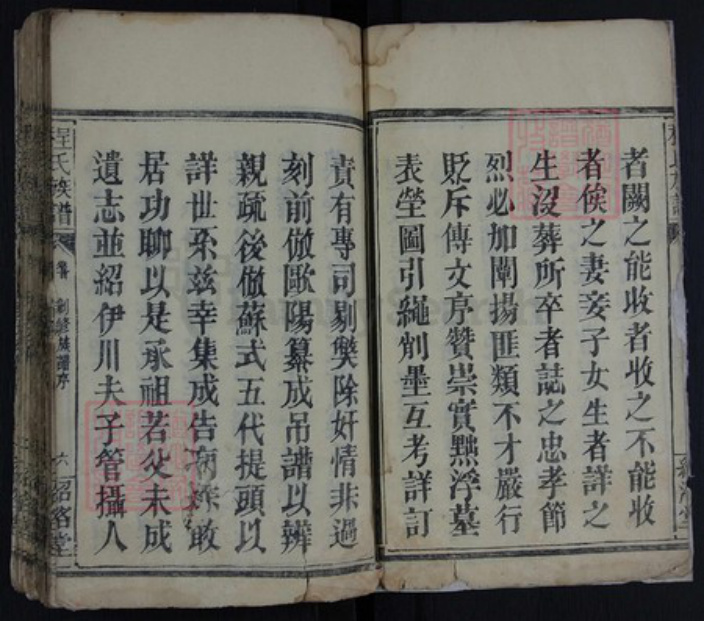 者闕之能收者收之不能收
者俟之妻妾子女生者詳之
生沒葬所卒者誌之忠孝節
烈必加闡揚匪類不才嚴行
貶斥傳文序贊崇實黜浮墓
表塋圖引繩削墨互考詳訂
責有專司剔獘除奸情非過
刻前倣歐陽纂成吊譜以辨
親疏後倣蘇式五代提頭以
詳世系兹幸集成告病族敢
居功聊以是承祖若父未成
遺志並紹伊川夫子管攝人
程氏族譜
創修族譜序
六
紹洛堂